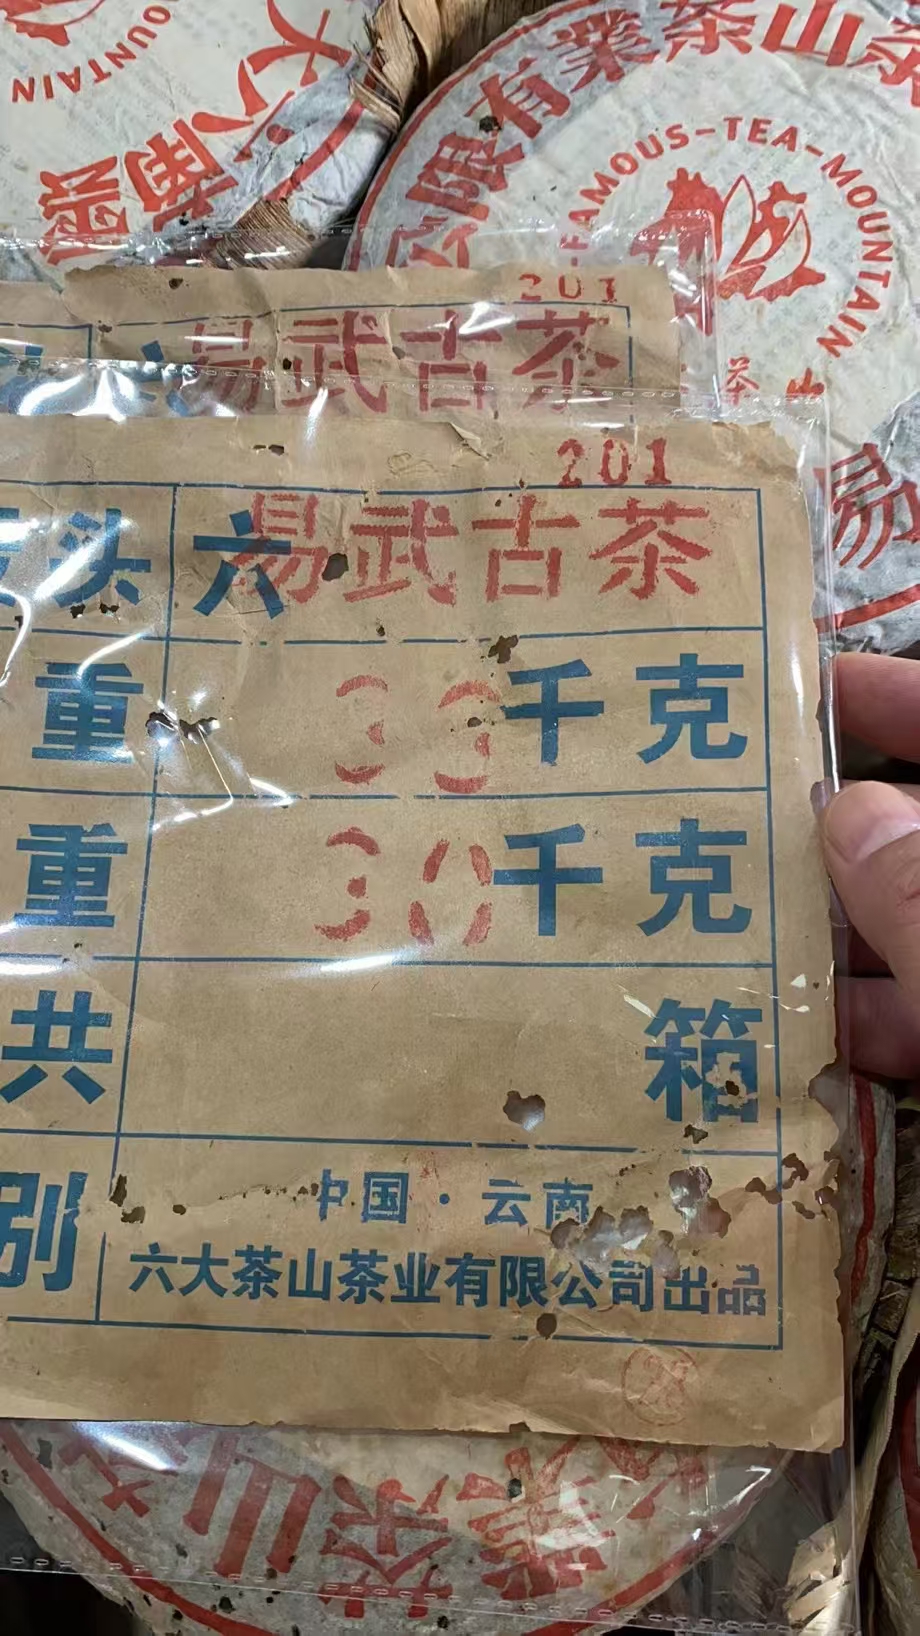 MOUNTAIN
六大
國雲南
公限有業茶山茶
FAMOUS-TEA-MOUNTAIN
201
六易武古茶
易
201
头 六易武古茶
重 33千克
重 30千克
共 箱
别 中国·云南
六大茶山茶业有限公司出品
山茶業